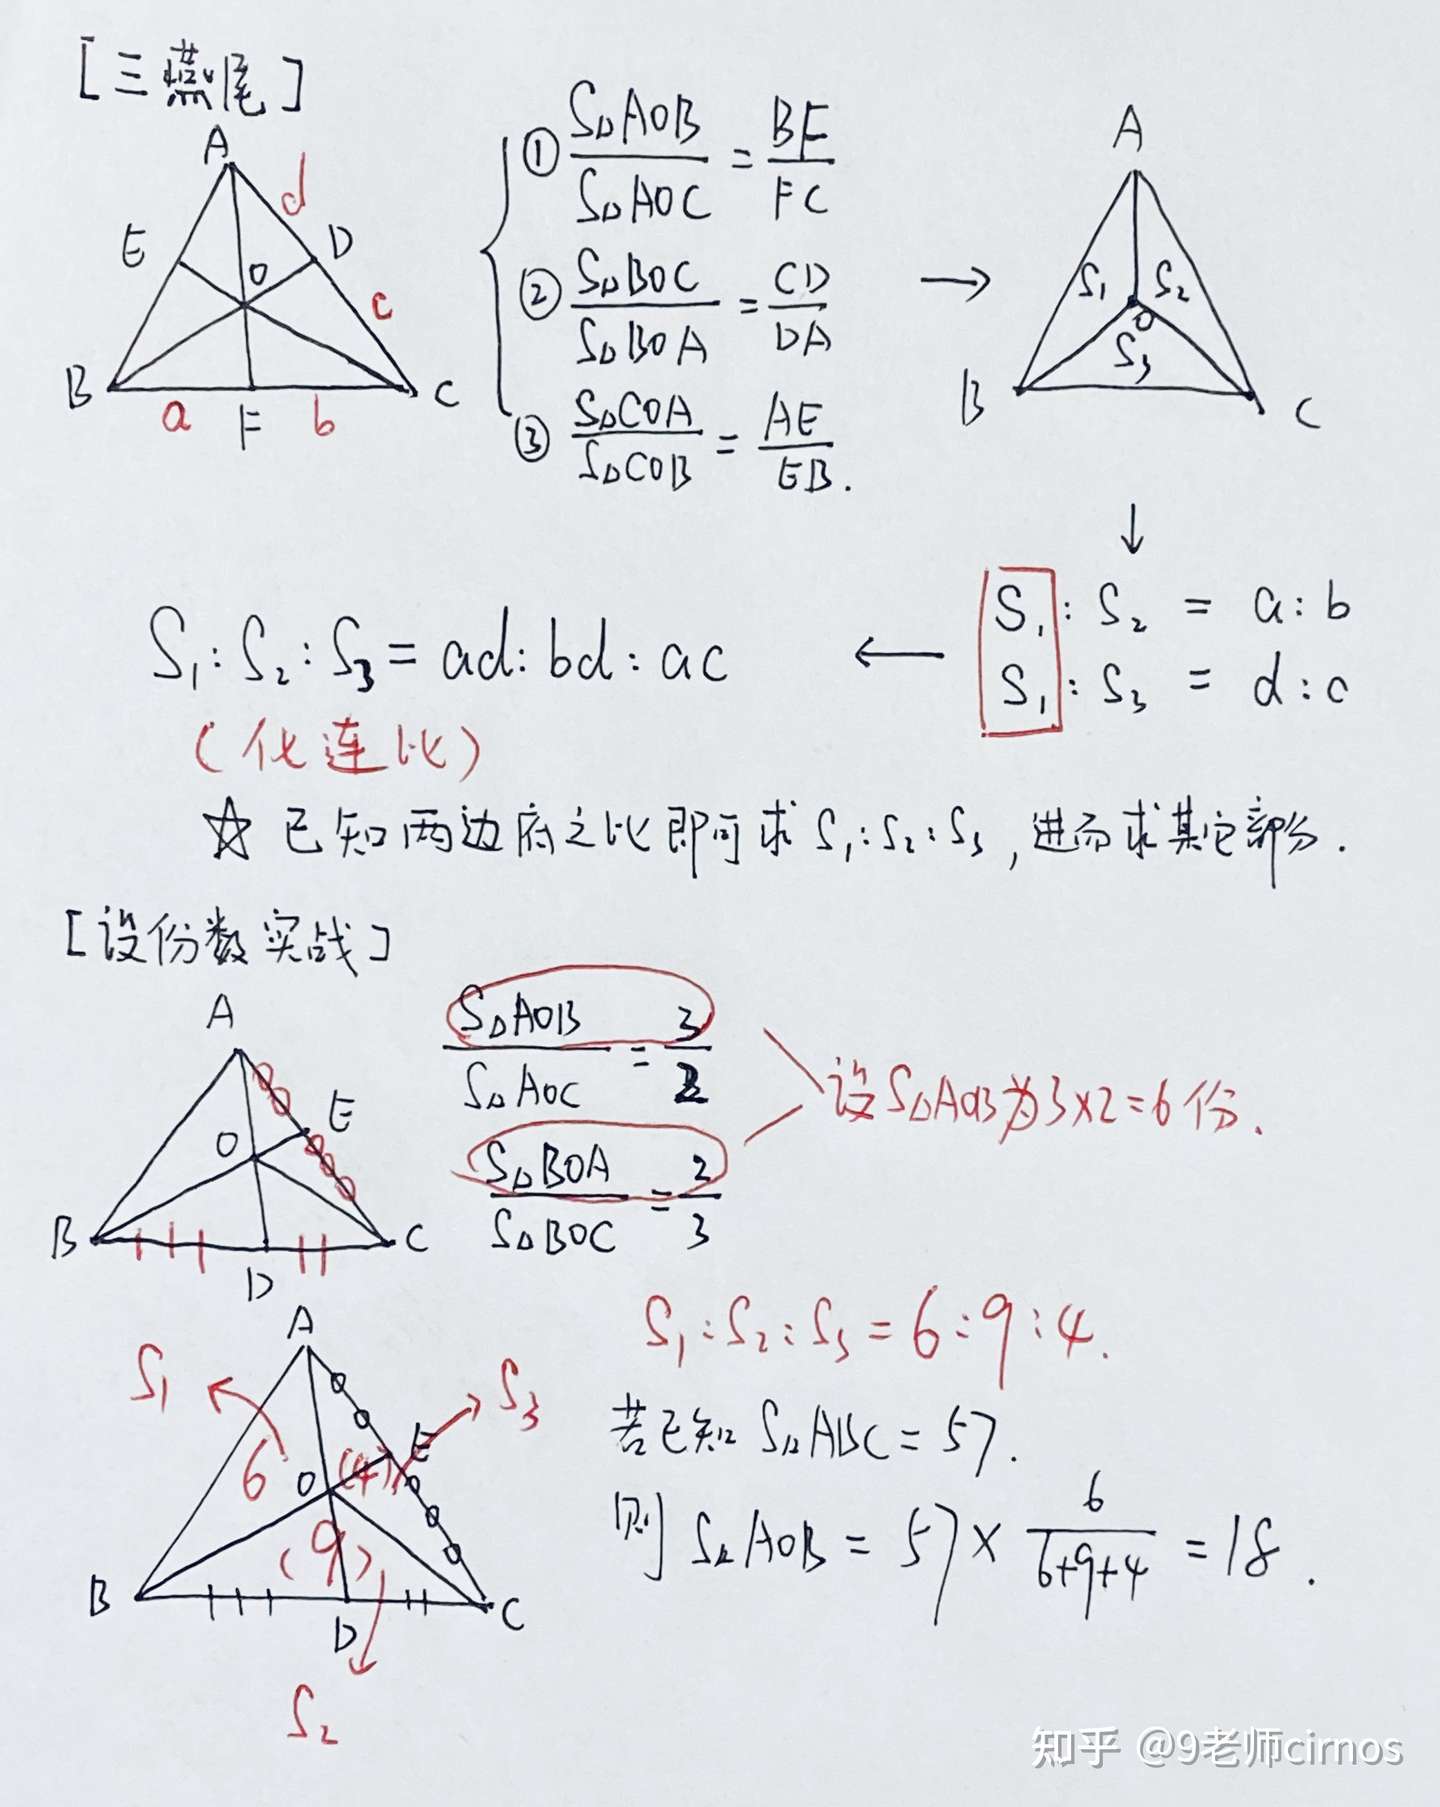 [三燕尾]
A
E
D
O
B
C
F
d
c
a
b
① S△AOB / S△AOC = BF / FC
② S△BOC / S△BOA = CD / DA
③ S△COA / S△COB = AE / EB.
→
A
S₁ S₂
O
S₃
B
C
↓
S₁ : S₂ = a : b
S₁ : S₃ = d : c
←
S₁ : S₂ : S₃ = ad : bd : ac
(化连比)
☆ 已知两边府之比即可求 S₁:S₂:S₃, 进而求其它部分.
[设份数实战]
A
E
O
B
C
D
S△AOB / S△AOC = 3 / 2
S△BOA / S△BOC = 2 / 3
设S△AOB为3×2=6份.
A
S₁
S₃
6
O
(4)
E
(9)
B
D
C
S₂
S₁ : S₂ : S₃ = 6 : 9 : 4.
若已知 S△ABC = 57.
则 S△AOB = 57 × 6 / (6+9+4) = 18.
知乎 @9老师cirnos